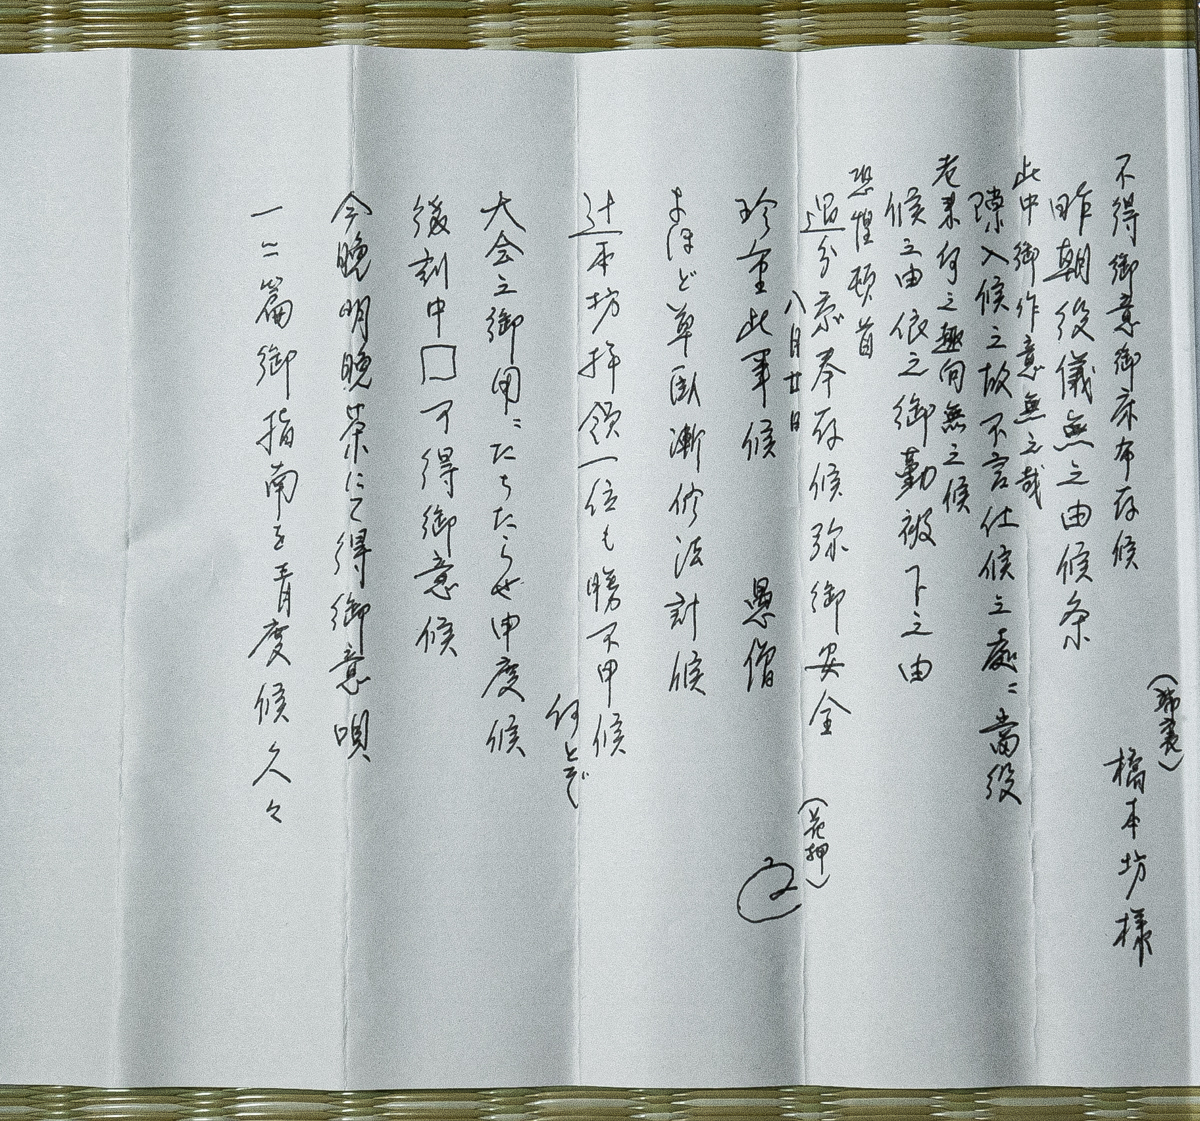 (端裏)
橋本坊様
不得御意御床布存候
昨朝役儀無之由候条
此中御作意無之哉
隙入候之故不言仕候之処ニ当役
老来何之趣向無之候
候之由依之御勤被下之由
恐惶頓首
過分忝奉存候弥御安全
八月廿日
(花押)
珍重此事候 愚僧
まほど草臥漸修法計候
辻本坊拝領一位も勝不申候
何とぞ
大会之御用ニたちたらせ申度候
後刻中□可得御意候
今晩明晩茶にて得御意唄
一ニ篇御指南を青度候久々